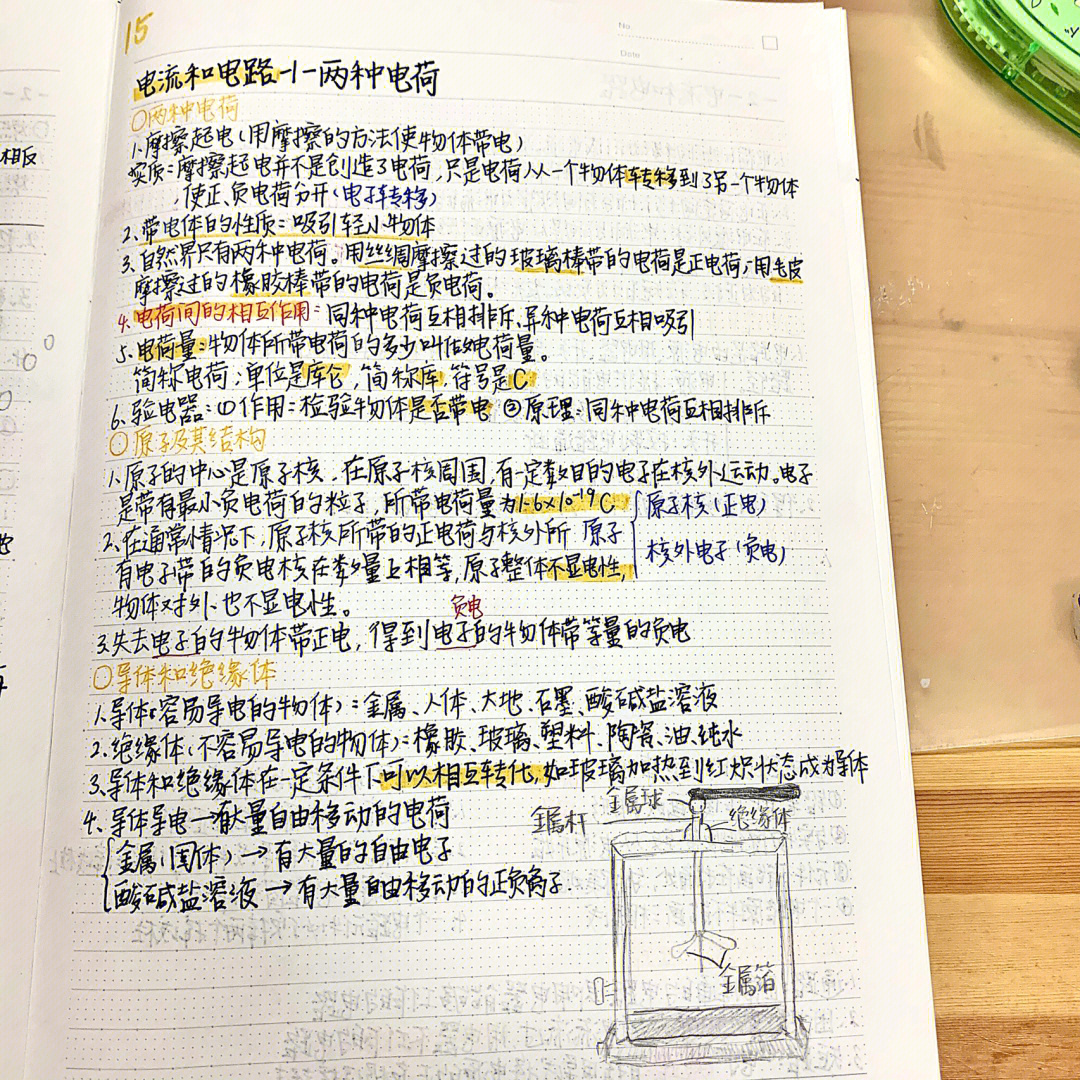 15
No.
Date
电流和电路-1-两种电荷
○两种电荷
1.摩擦起电(用摩擦的方法使物体带电)
实质:摩擦起电并不是创造了电荷,只是电荷从一个物体转移到了另一个物体
,使正、负电荷分开(电子转移)
2.带电体的性质:吸引轻小物体
3.自然界只有两种电荷。用丝绸摩擦过的玻璃棒带的电荷是正电荷;用毛皮
摩擦过的橡胶棒带的电荷是负电荷。
4.电荷间的相互作用:同种电荷互相排斥、异种电荷互相吸引
5.电荷量:物体所带电荷的多少叫做电荷量。
简称电荷;单位是库仑,简称库.符号是C
6.验电器:①作用:检验物体是否带电 ②原理:同种电荷互相排斥
○原子及其结构
1.原子的中心是原子核,在原子核周围,有一定数目的电子在核外运动。电子
是带有最小负电荷的粒子,所带电荷量为1.6×10⁻¹⁹C
2.在通常情况下,原子核所带的正电荷与核外所
有电子带的负电核在数量上相等,原子整体不显电性,
物体对外也不显电性。
原子
原子核(正电)
核外电子(负电)
负电
3.失去电子的物体带正电,得到电子的物体带等量的负电
○导体和绝缘体
1.导体(容易导电的物体):金属、人体、大地、石墨、酸碱盐溶液
2.绝缘体(不容易导电的物体):橡胶、玻璃、塑料、陶瓷、油、纯水
3.导体和绝缘体在一定条件下可以相互转化,如玻璃加热到红炽状态成为导体
4.导体导电→有大量自由移动的电荷
金属(固体)→有大量的自由电子
酸碱盐溶液→有大量自由移动的正负离子.
金属球
金属杆
绝缘体
金属箔